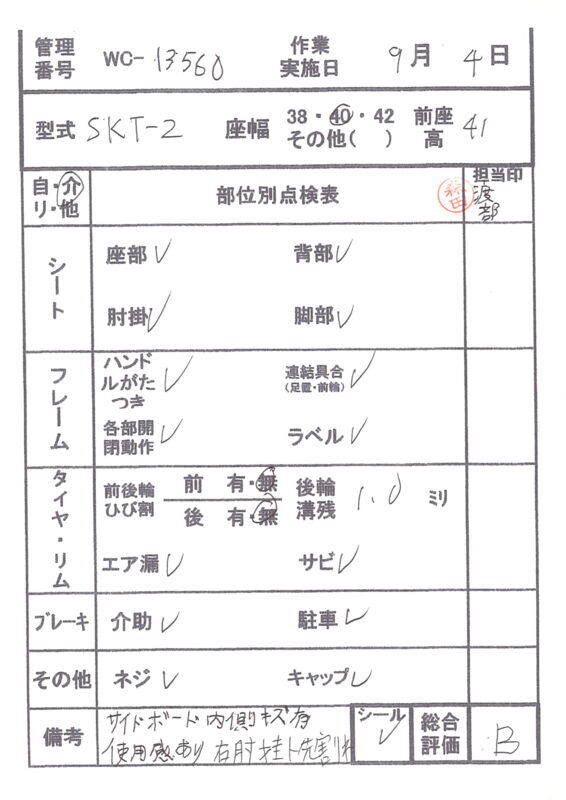 管理番号 WC-13560 作業実施日 9月4日
型式 SKT-2 座幅 38・40・42 その他( ) 前座高 41
自・介 リ・他 部位別点検表 担当印
渡部
シート 座部 レ 背部 レ
肘掛 レ 脚部 レ
フレーム ハンドルがたつき レ 連結具合(足置・前輪) レ
各部開閉動作 レ ラベル レ
タイヤ・リム 前後輪ひび割 前 有・無 後 有・無 後輪溝残 1.0 ミリ
エア漏 レ サビ レ
ブレーキ 介助 レ 駐車 レ
その他 ネジ レ キャップ レ
備考 サイドボード内側キズ有 シール レ 総合評価 B
使用感あり 右肘掛ト先割れ